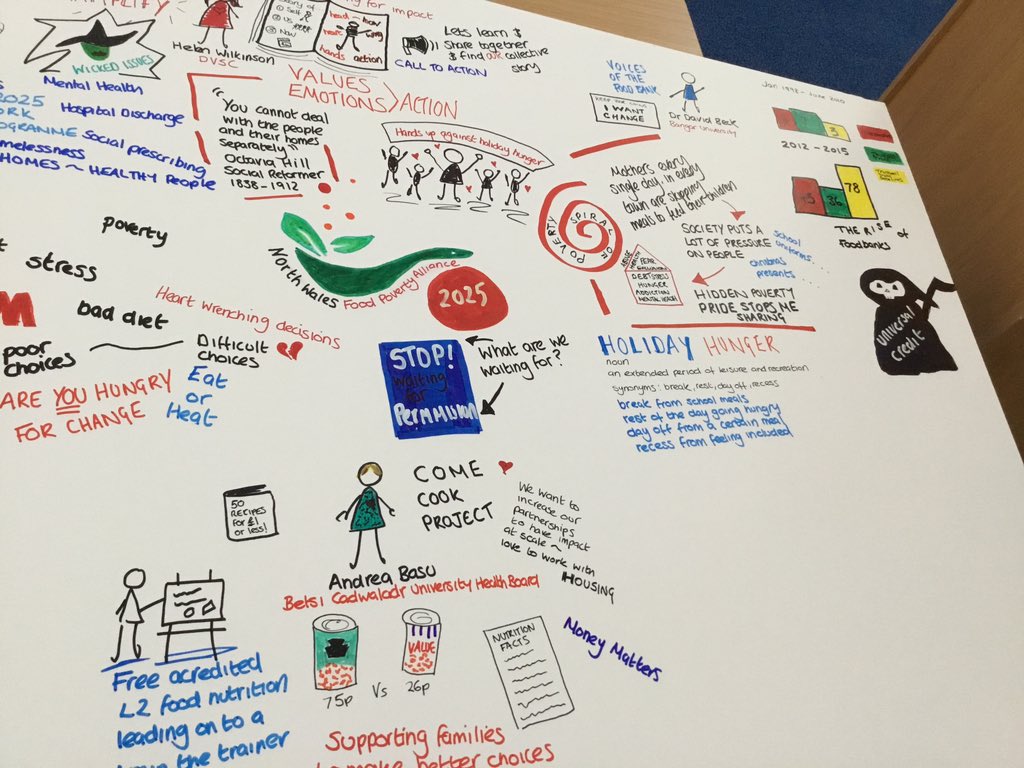 for impact
WICKED ISSUES
Mental Health
2025
Hospital Discharge
Social prescribing
HOMES ~ HEALTHY PEOPLE
Helen Wilkinson
DVSC
Self
Us
Now
head
hands
action
CALL TO ACTION
Lets learn &
share together
& find our collective
story
VALUES
EMOTIONS > ACTION
"You cannot deal
with the people
and their homes
separately"
Octavia Hill
Social Reformer
1838-1912
Hands up against holiday hunger
VOICES
OF THE
FOOD BANK
I WANT
CHANGE
Dr David Beck
Bangor University
Mothers every
single day, in every
town are skipping
meals to feed their children
SPIRAL OF POVERTY
SOCIETY PUTS A
LOT OF PRESSURE
ON PEOPLE
school
uniforms
christmas
presents
FEAR
DEBT STRESS
HUNGER
ADDICTION
MENTAL HEALTH
HIDDEN POVERTY
PRIDE STOPS ME
SHARING
3
2012 - 2015
36
78
THE RISE of
Foodbanks
universal
credit
poverty
stress
bad diet
poor
choices
Difficult
choices
Heart wrenching decisions
ARE YOU HUNGRY
FOR CHANGE
Eat
or
Heat
North Wales
Food Poverty Alliance
2025
STOP!
waiting
for
PERMISSION
What are we
waiting for?
HOLIDAY HUNGER
noun
an extended period of leisure and recreation
synonyms: break, rest, day off, recess
break from school meals
rest of the day going hungry
day off from a certain meal
recess from feeling included
50
RECIPES
for £1
or less!
COME
COOK
PROJECT
We want to
increase our
partnerships
to have impact
at scale ~
love to work with
HOUSING
Andrea Basu
Betsi Cadwaladr University Health Board
VALUE
75p Vs 26p
NUTRITION
FACTS
Money Matters
Free acredited
L2 food nutrition
leading on to a
the trainer
Supporting families
to make better choices